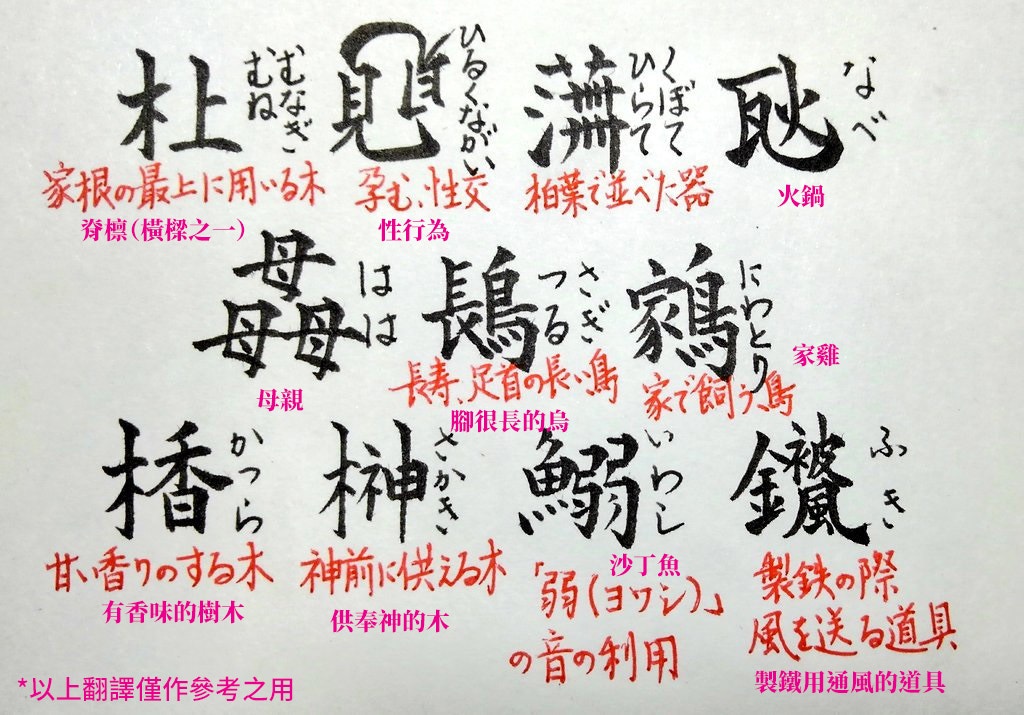 むなぎ
むね
家根の最上に用いる木
脊檁(橫樑之一)
ひるくながい
孕む、性交
性行為
くぼて
ひらて
柏葉で並べた器
なべ
火鍋
はは
母親
さぎ
つる
長寿、足首の長い鳥
腳很長的烏
にわとり
家で飼う鳥
家雞
かつら
甘い香りのする木
有香味的樹木
榊
さかき
神前に供える木
供奉神的木
鰯
いわし
沙丁魚
「弱(ヨワシ)」
の音の利用
ふき
製鉄の際
風を送る道具
製鐵用通風的道具
*以上翻譯僅作參考之用